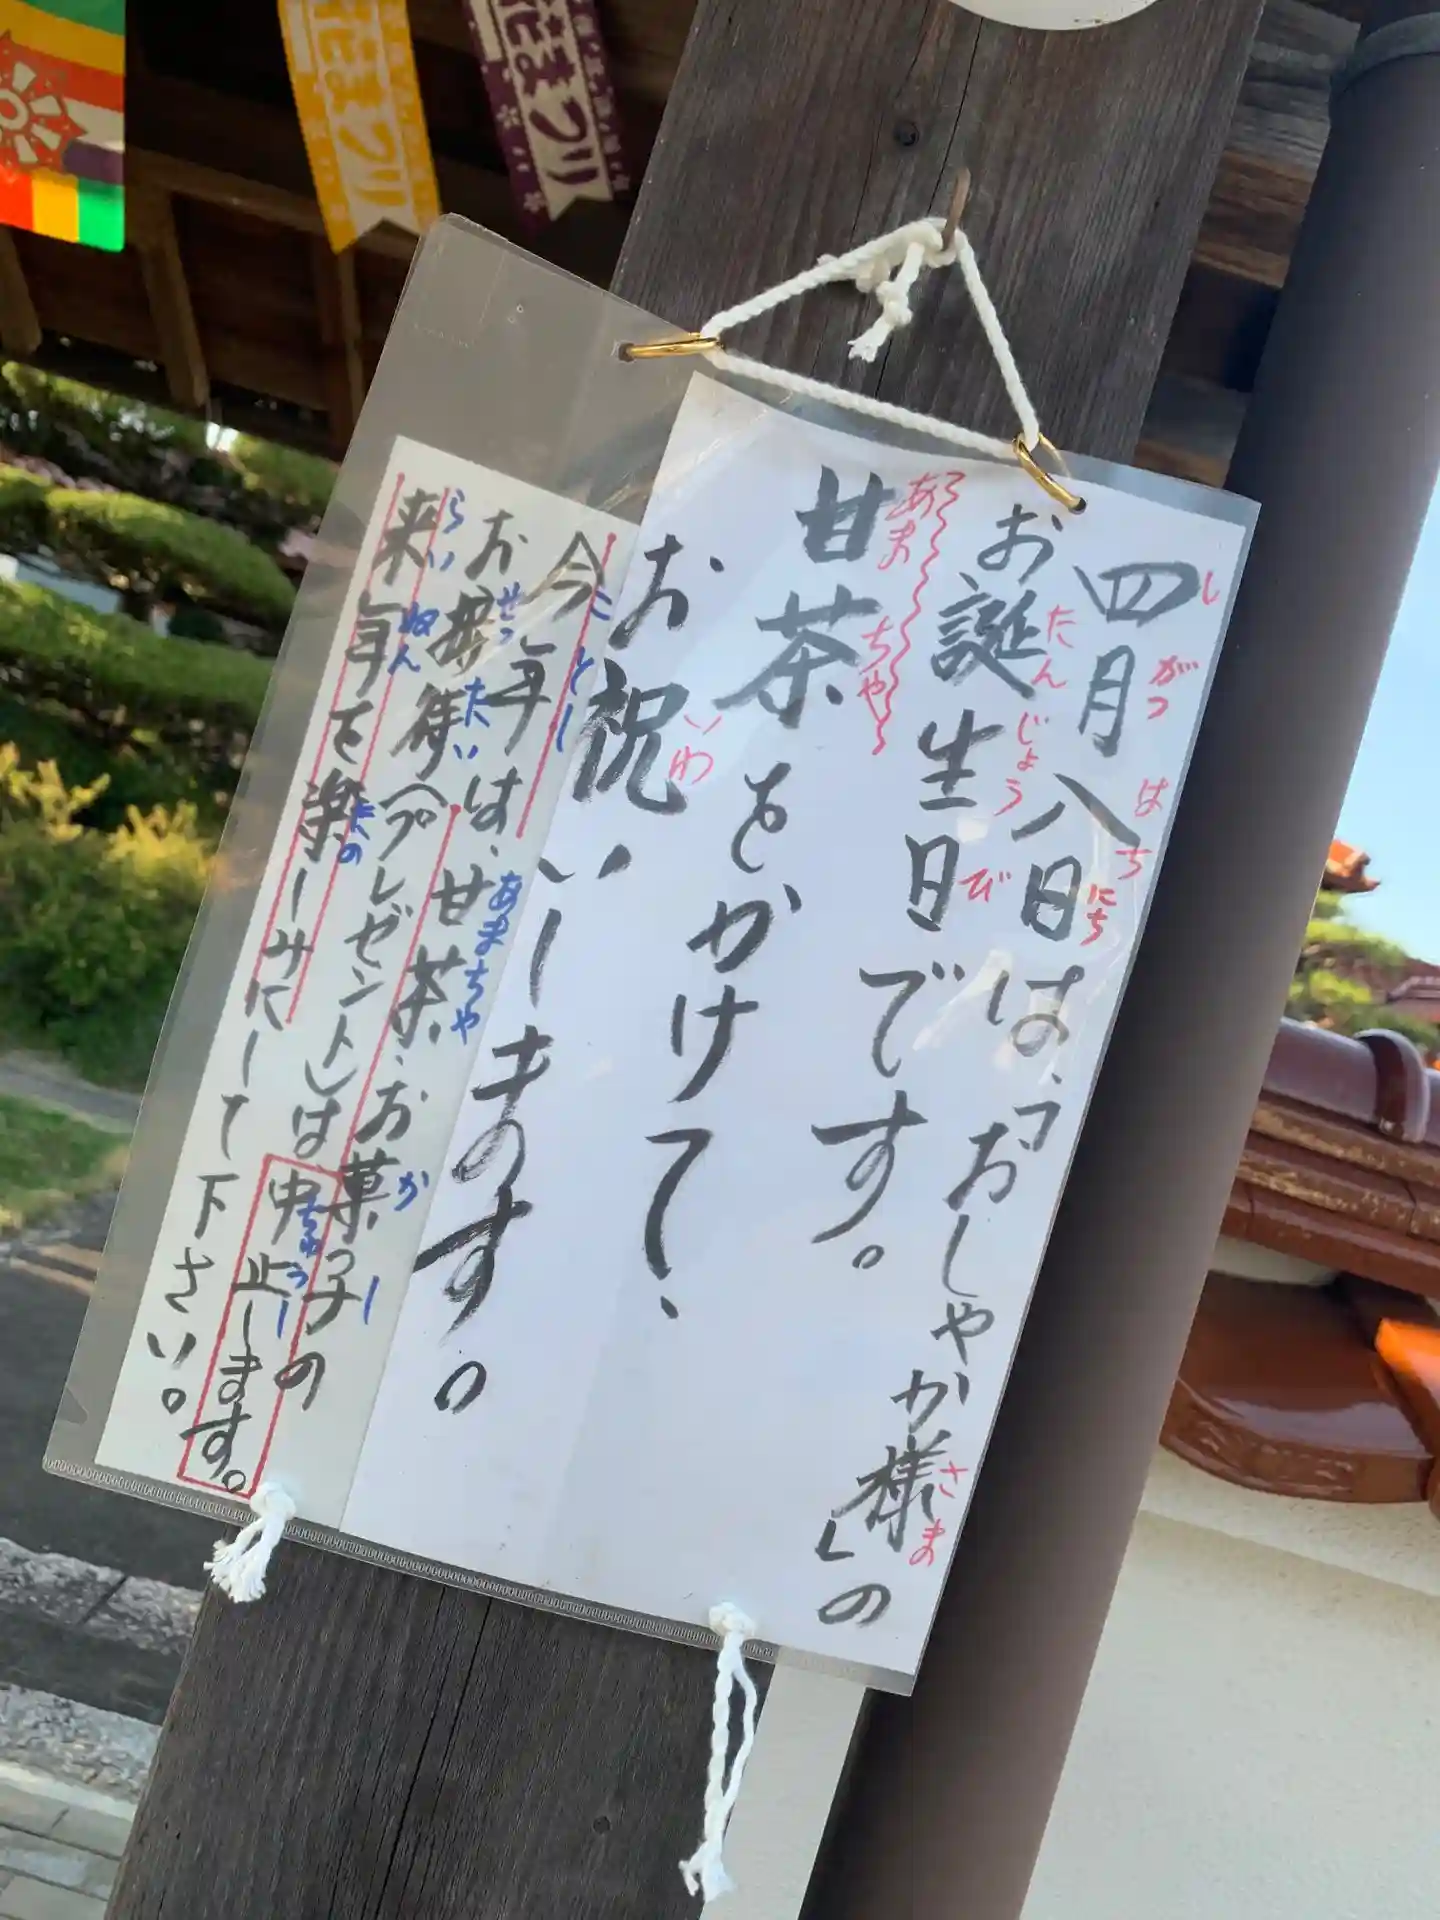 四月八日は、「おしゃか様」の
お誕生日です。
甘茶をかけて、
お祝いします。
今年は、甘茶、お菓子の
お接待(プレゼント)は中止します。
来年を楽しみにして下さい。
しがつはちにち
さま
たんじょうび
あまちゃ
いわ
ことし
あまちゃ
かし
せったい
ちゅうし
らいねん
たの
花まつり
花まつり